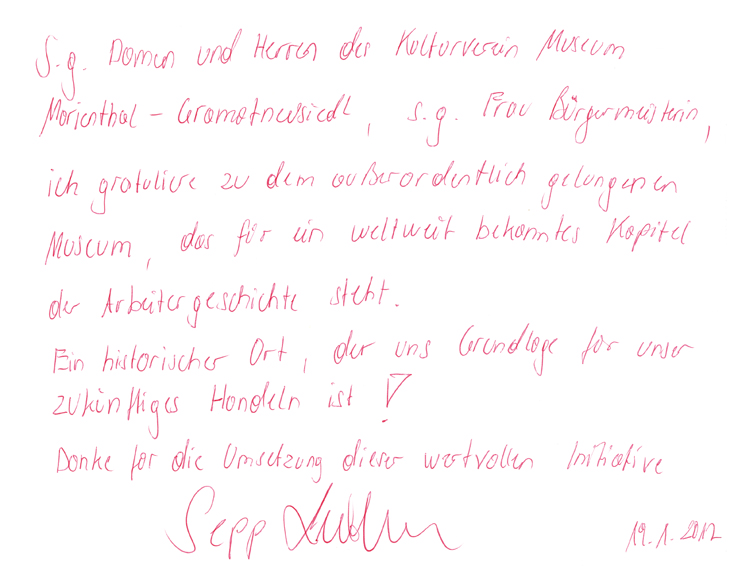 S.g. Damen und Herren des Kulturverein Museum
Marienthal - Gramatneusiedl, s.g. Frau Bürgermeisterin,
ich gratuliere zu dem außerordentlich gelungenen
Museum, das für ein weltweit bekanntes Kapitel
der Arbeitergeschichte steht.
Ein historischer Ort, der uns Grundlage für unser
zukünftiges Handeln ist !
Danke für die Umsetzung dieser wertvollen Initiative
Sepp
19.1.2012